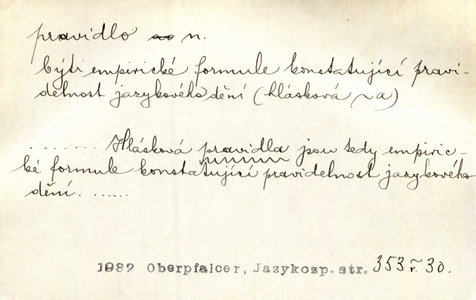 pravidlo n.
býti empirické formule konstatující pravi-
delnost jazykového dění (hlásková ~a)
........ Hlásková pravidla jsou tedy empiric-
ké formule konstatující pravidelnost jazykového
dění. ......
1982 Oberpfalcer, Jazykozp. str. 353 ř. 30.